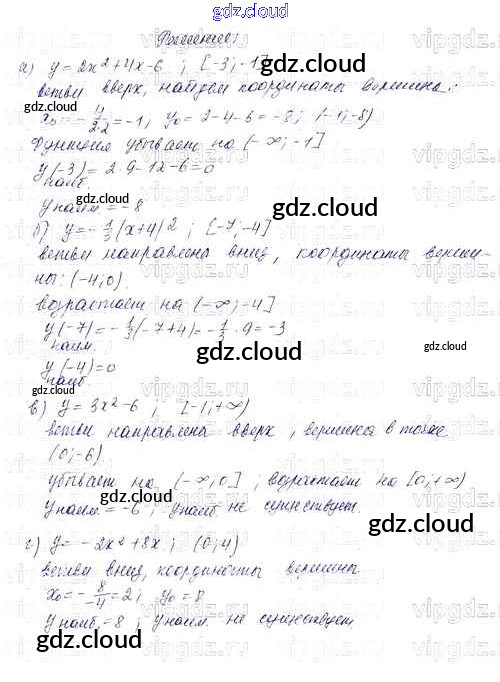 gdz.cloud
Решение:
а) y = 2x² + 4x - 6 ; [-3; -1]
ветви вверх, найдем координаты вершины:
x₀ = -4/2·2 = -1, y₀ = 2 - 4 - 6 = -8; (-1; -8)
Функция убывает на (-∞; -1]
y(-3) = 2·9 - 12 - 6 = 0
наиб.
y наим = -8
б) y = -1/3(x+4)² ; [-7; -4]
ветви направлена вниз, координаты верши-
ны: (-4; 0).
возрастает на (-∞; -4]
y(-7) = -1/3(-7+4) = -1/3·9 = -3
наим.
y(-4) = 0
наиб.
в) y = 3x² - 6 ; [-1; +∞)
ветви направлена вверх, вершина в точке
(0; -6)
убывает на (-∞; 0] ; возрастает на [0; +∞)
y наим = -6 ; y наиб не существует.
г) y = -2x² + 8x ; (0; 4)
ветви вниз, координаты вершины
x₀ = -8/-4 = 2; y₀ = 8
y наиб. = 8 ; y наим. не существует.
gdz.cloud